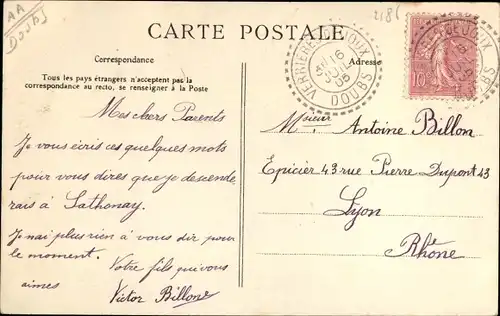 AA
DOUBS
2186
CARTE POSTALE
Correspondance
Adresse
Tous les pays étrangers n'acceptent pas la
correspondance au recto, se renseigner à la Poste
VERRIERES DE JOUX
16
DOUBS
10
Mes chers Parents
Je vous écris ces quelques mots
pour vous dires que je descende
rais à Sathonay.
Je n'ai plus rien à vous dir pour
le moment.
Votre fils qui vous
aimes
Victor Billon
Msieur Antoine Billon
Epicier 43 rue Pierre Dupont 43
Lyon
Rhône